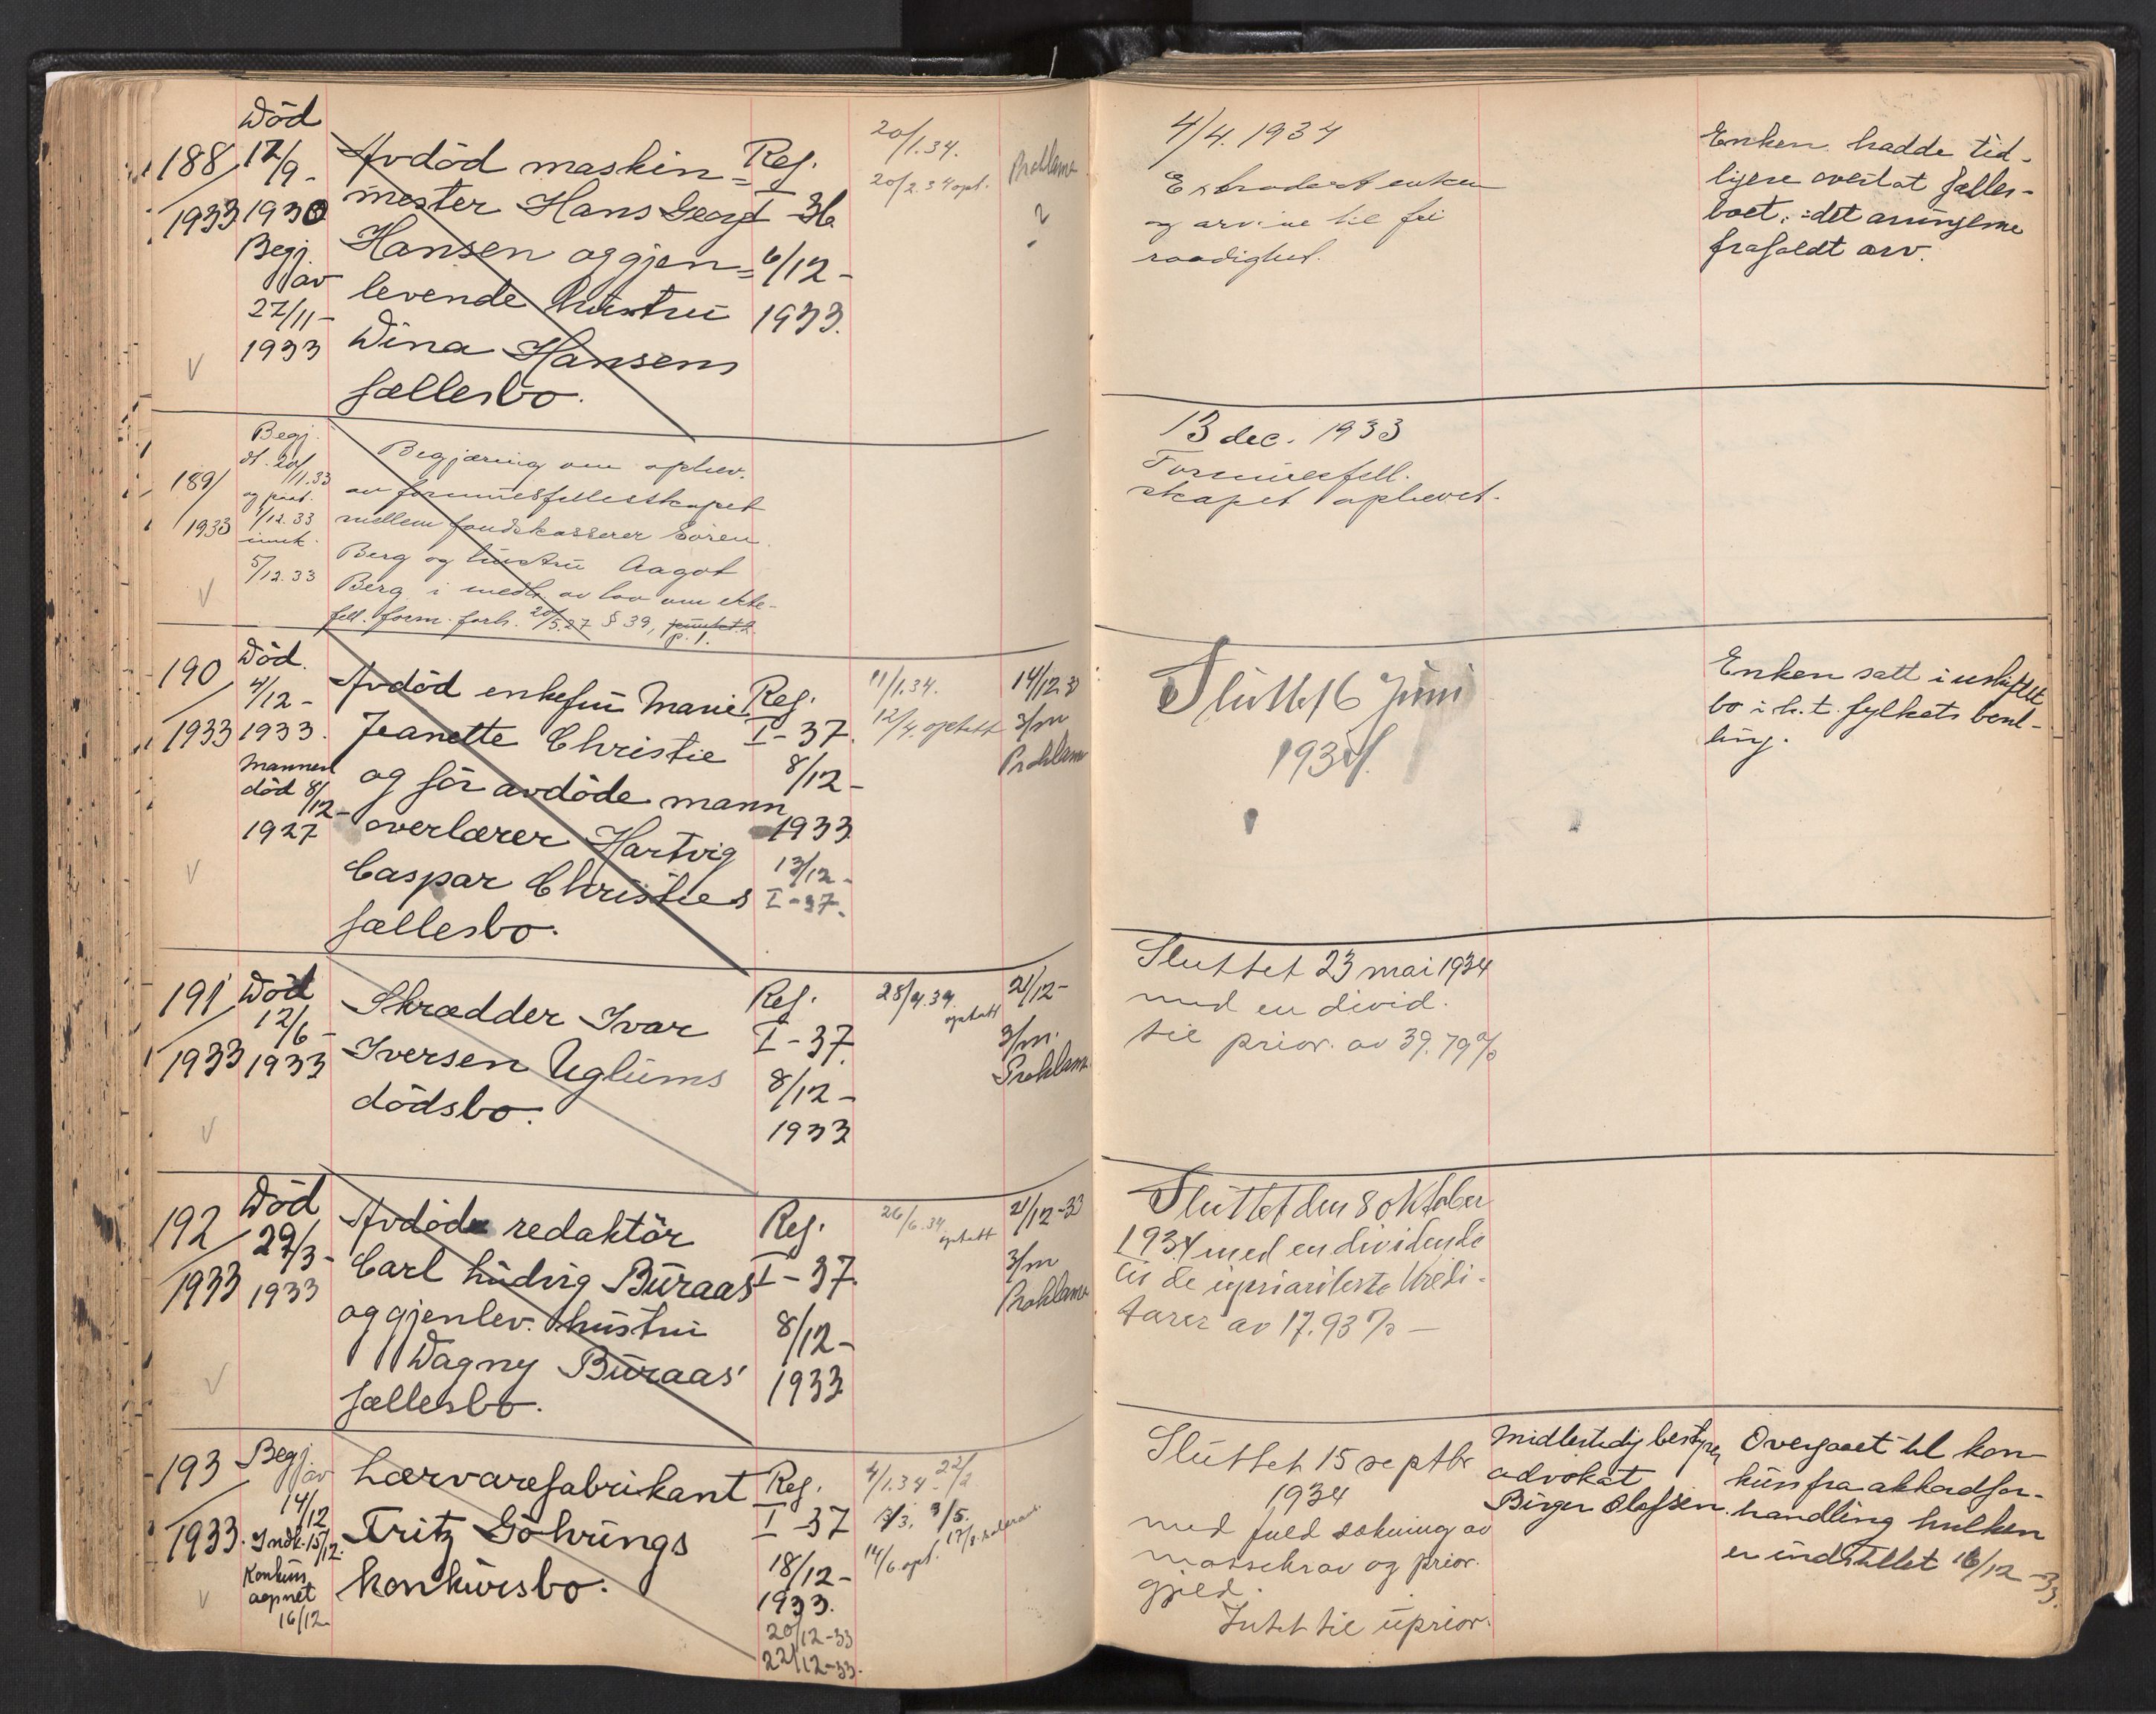 Död
188/ 12/9- Avdöd maskin= Reg. 20/1.34. Proklama
1933 1930 mester Hans Georg I-36 20/2.34 opt. ?
Begj. Hansen og gjen= 6/12-
av levende hustru 1933.
27/11- Dina Hansens
1933 fællesbo.
V
4/4. 1934
Extradert enken
og arvine til fri
raadighet.
Enken hadde tid-
ligere overlatt fælles-
boet,
frafaldt arv.
Begj. Begjæring om ophev.
dt. 20/11.33 av formuesfellesskapet
189/ 1933 og prot. 1/12.33 mellem fondskasserer Sören
innk. Berg og hustru Aagot
5/12.33 Berg i medh. av lov om ekte-
V fell. form. forh. 20/5.27 § 39, punkt 2.
p. 1.
13 dec. 1933
Formuesfell.
skapet ophevet.
190/ Död. Avdöd enkefru Marie Reg. 11/1.34. 14/12.33
1933 4/12- 1933. Jeanette Christie I-37. 12/4. optatt 3/m
Mannen og för avdöde mann 8/12- Proklam
död 8/12- overlærer Hartvig 1933
1927 Caspar Christies 13/12-
V fællesbo. I-37.
Sluttet 6 Juni
1934.
Enken satt i uskiftet
bo i h.t. fylkets bevil-
ling.
191/ Död Skrædder Ivar Reg. 28/4.34. 21/12-
12/6- Iversen Uglums I-37. optatt 3/m.
1933 1933 dödsbo. 8/12- Proklama
V 1933
Sluttet 23 mai 1934
med en divid.
til prior. av 39.79%
192/ Död Avdöde redaktör Reg. 26/6.34. 21/12-33
29/3- Carl Ludvig Buraas I-37. optatt 3/m
1933 1933 og gjenlev. hustru 8/12- Proklama
Dagny Buraas' 1933
V fællesbo.
Sluttet den 8 oktober
1934 med en dividende
til de upriariterte kredi-
torer av 17.93% —
193/ Begj. av Lærvarefabrikant Reg. 4/1.34- 22/2
14/12 Fritz Göhrings I-37 3/5.
1933. Indk. 15/12. konkursbo. 18/12- 14/6. opt.
Konkurs 1933.
aapnet 20/12-33
V 16/12- 22/12-33.
Sluttet 15 septbr
1934
med fuld dekning av
massekrav og prior.
gjeld.
Intet til uprior.
Midlertidig bestyrer
advokat
Birger Olafsen.
Overgaaet til kon-
kurs fra akkordfor-
handling hvilken
er indstillet 16/12-33.